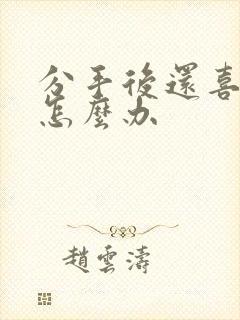 分手後還喜
怎麼办
趙雲濤